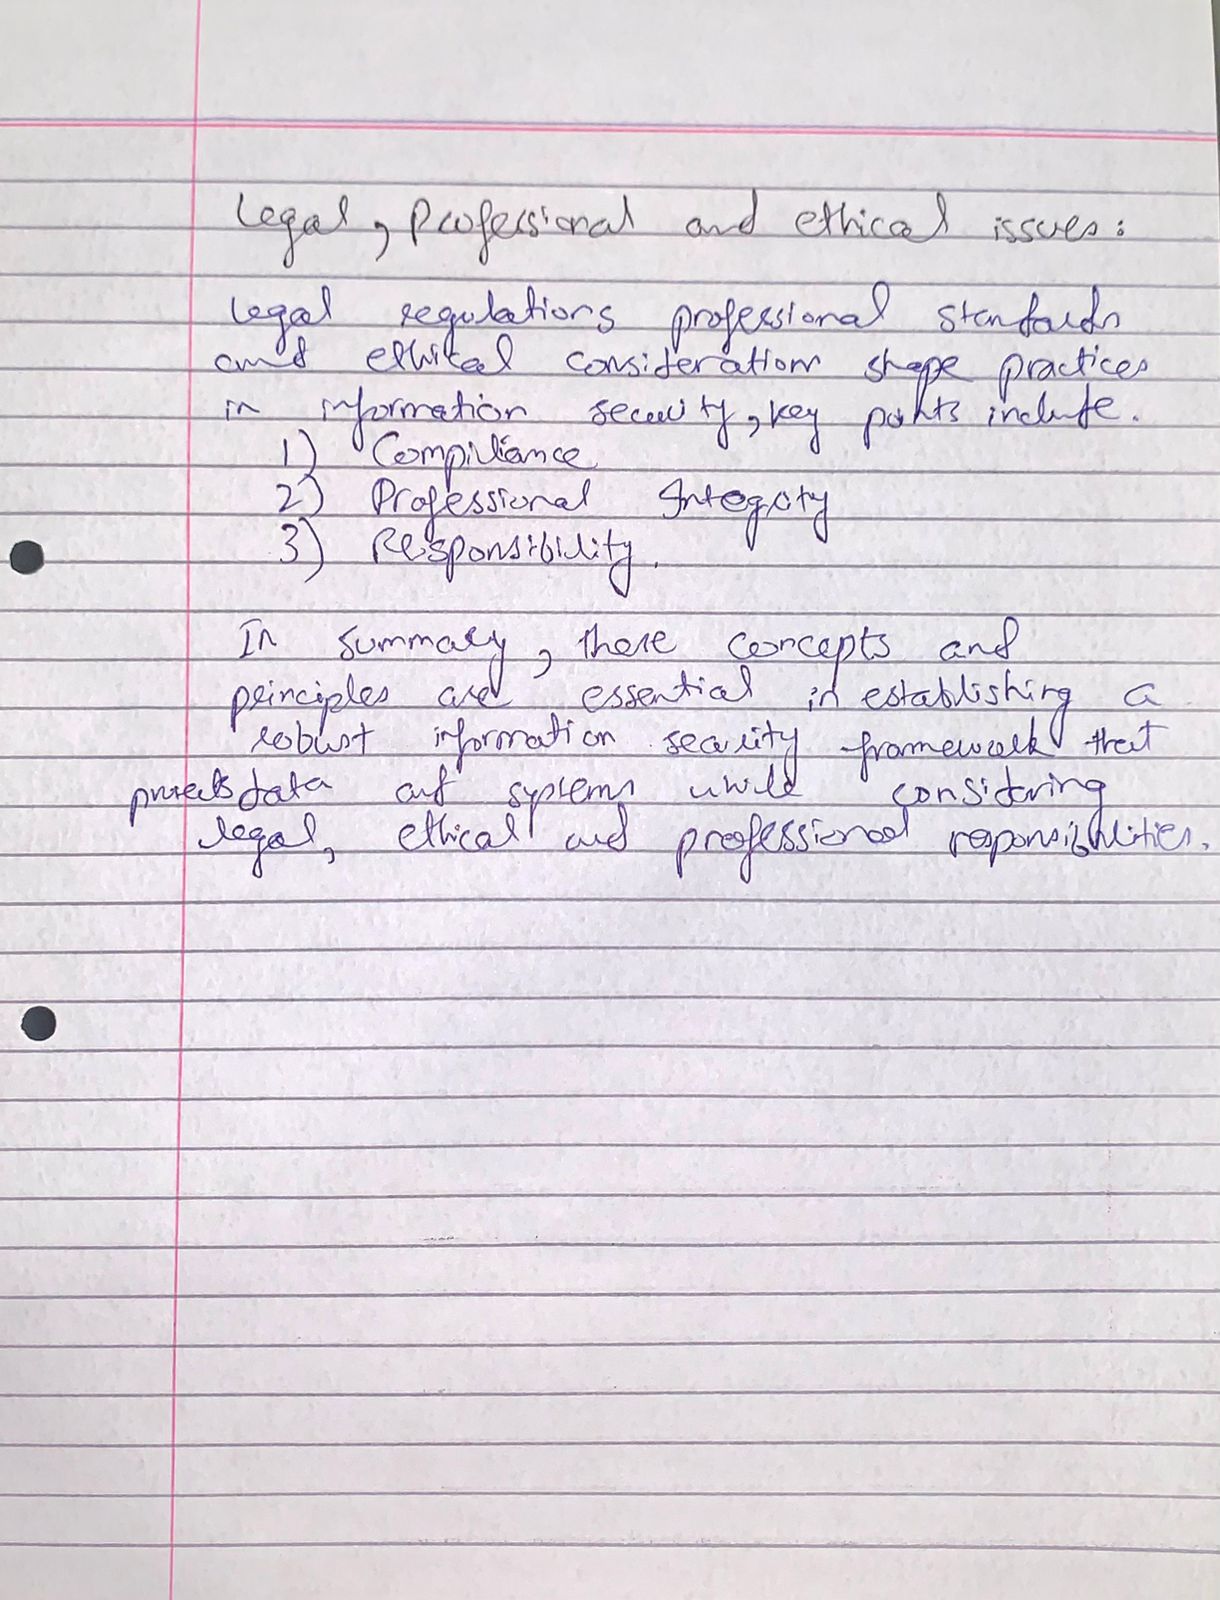 Legal, professional and ethical issues:
Legal regulations professional standards
and ethical consideration shape practices
in information security, key points include.
1) Compiliance
2) Professional Integrity
3) Responsibility.
In summary, these concepts and
principles are essential in establishing a
robust information security framework that
protects data and systems while considering
legal, ethical and professional responsibilities.